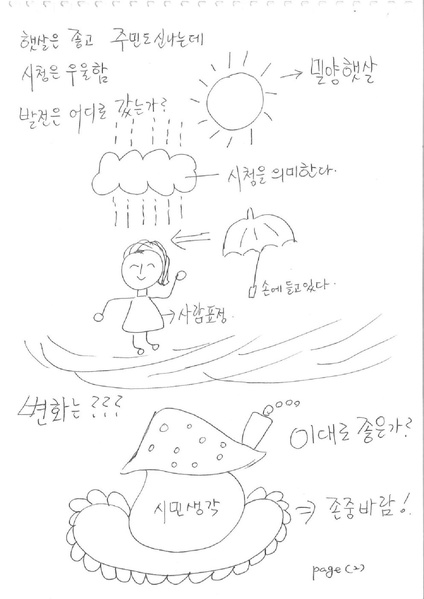 햇살은 좋고 주민도 신나는데
시청은 우울함
발전은 어디로 갔는가?
밀양햇살
시청을 의미한다.
손에 들고있다.
사람표정.
변화는???
이대로 좋은가?
시민생각
존중바람!
page(2)